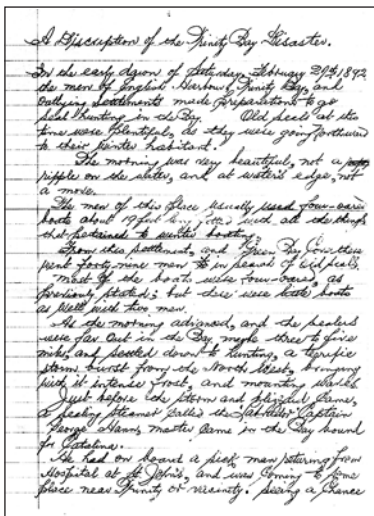 A Discruption of the Trinity Bay Disaster.
In the early dawn of Saturday, February 29th 1892
the men of English Harbour, Trinity Bay, and
outlying settlements made preparations to go
seal hunting in the Bay. Old seals at this
time were plentiful, as they were going northward
to their winter habitant.
The morning was very beautiful, not a
ripple on the water, and at water's edge, not
a move.
The men of this place usually used four-oared
boats about 19 feet long with all the things
that pertained to boating.
From this settlement, and Green Bay Cove there
went forty-nine men to in search of old seals.
Most of the boats were four-oared, as
previously stated; but there were little boats
as well with two men.
As the morning advanced, and the sealers
were far out in the Bay, maybe three to five
miles, and settled down to hunting, a terrific
storm burst from the North West, bringing
with it intense frost, and mounting waves
Just before the storm and blizzard came,
a sealing steamer called the Labrador Captain
George Hann, master came in the Bay bound
for Catalina.
He had on board a sick man returing from
Hospital at St John's, and was coming to some
place near Trinity or vacinity. seeing a chance